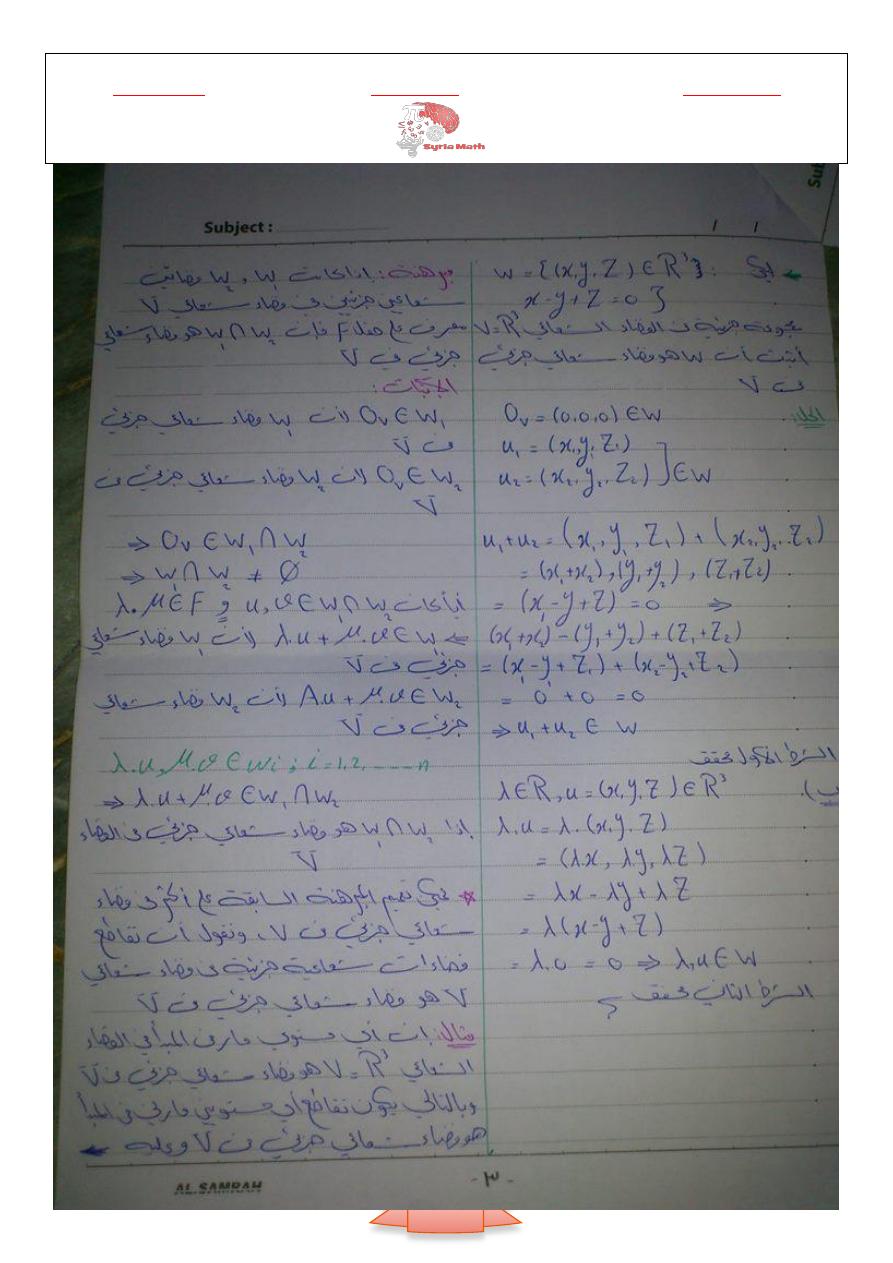 Syria Math
Subject :
/ /
ليكن : W = {(x, y, Z) ∈ R³ ;
x - y + Z = 0 }
مجموعة جزئية من الفضاء الشعاعي V = R³
أثبت أن W هو فضاء شعاعي جزئي
من V
الحل: 0v = (0,0,0) ∈ W
u₁ = (x₁, y₁, Z₁)
u₂ = (x₂, y₂, Z₂) ] ∈ W
u₁ + u₂ = (x₁, y₁, Z₁) + (x₂, y₂, Z₂)
= (x₁+x₂), (y₁+y₂), (Z₁+Z₂)
= (x₁ - y + Z) = 0 ⇒
(x₁+x₂) - (y₁+y₂) + (Z₁+Z₂)
= (x₁ - y + Z₁) + (x₂ - y₂ + Z₂)
= 0 + 0 = 0
⇒ u₁ + u₂ ∈ W
الشرط الأول محقق
ب). λ ∈ R, u = (x, y, Z) ∈ R³
λ.u = λ.(x, y, Z)
= (λx, λy, λZ)
= λx - λy + λZ
= λ(x - y + Z)
= λ.0 = 0 ⇒ λ.u ∈ W
الشرط الثاني محقق ؟
مبرهنة: إذا كانت W₁ و W₂ فضائين
شعاعيين جزئيين في فضاء شعاعي V
معرف على حقل F فإن W₁ ∩ W₂ هو فضاء شعاعي
جزئي في V
الإثبات:
0v ∈ W₁ لأن W₁ فضاء شعاعي جزئي
من V
0v ∈ W₂ لأن W₂ فضاء شعاعي جزئي من
V
⇒ 0v ∈ W₁ ∩ W₂
⇒ W₁ ∩ W₂ ≠ Ø
كانت u, v ∈ W₁ ∩ W₂ و λ, μ ∈ F
⇐ λ.u + μ.v ∈ W₁ لأن W₁ فضاء شعاعي
جزئي من V
λu + μ.v ∈ W₂ لأن W₂ فضاء شعاعي
جزئي من V
λ.u, μ.v ∈ Wi ; i = 1,2, ------ n
⇒ λ.u + μ.v ∈ W₁ ∩ W₂
إذا W₁ ∩ W₂ هو فضاء شعاعي جزئي من الفضاء
V
☆ يمكن تعميم المبرهنة السابقة على أكثر من فضاء
شعاعي جزئي من V، ونقول أن تقاطع
فضاءات شعاعية جزئية من فضاء شعاعي
V هو فضاء شعاعي جزئي من V
مثال: إن أي مستوي مار من المبدأ في الفضاء
الشعاعي V = R³ هو فضاء شعاعي جزئي من V
وبالتالي يكون تقاطع أي مستويين مارين من المبدأ
هو فضاء شعاعي جزئي من V وعليه
- ٣ -
AL SAMRAH